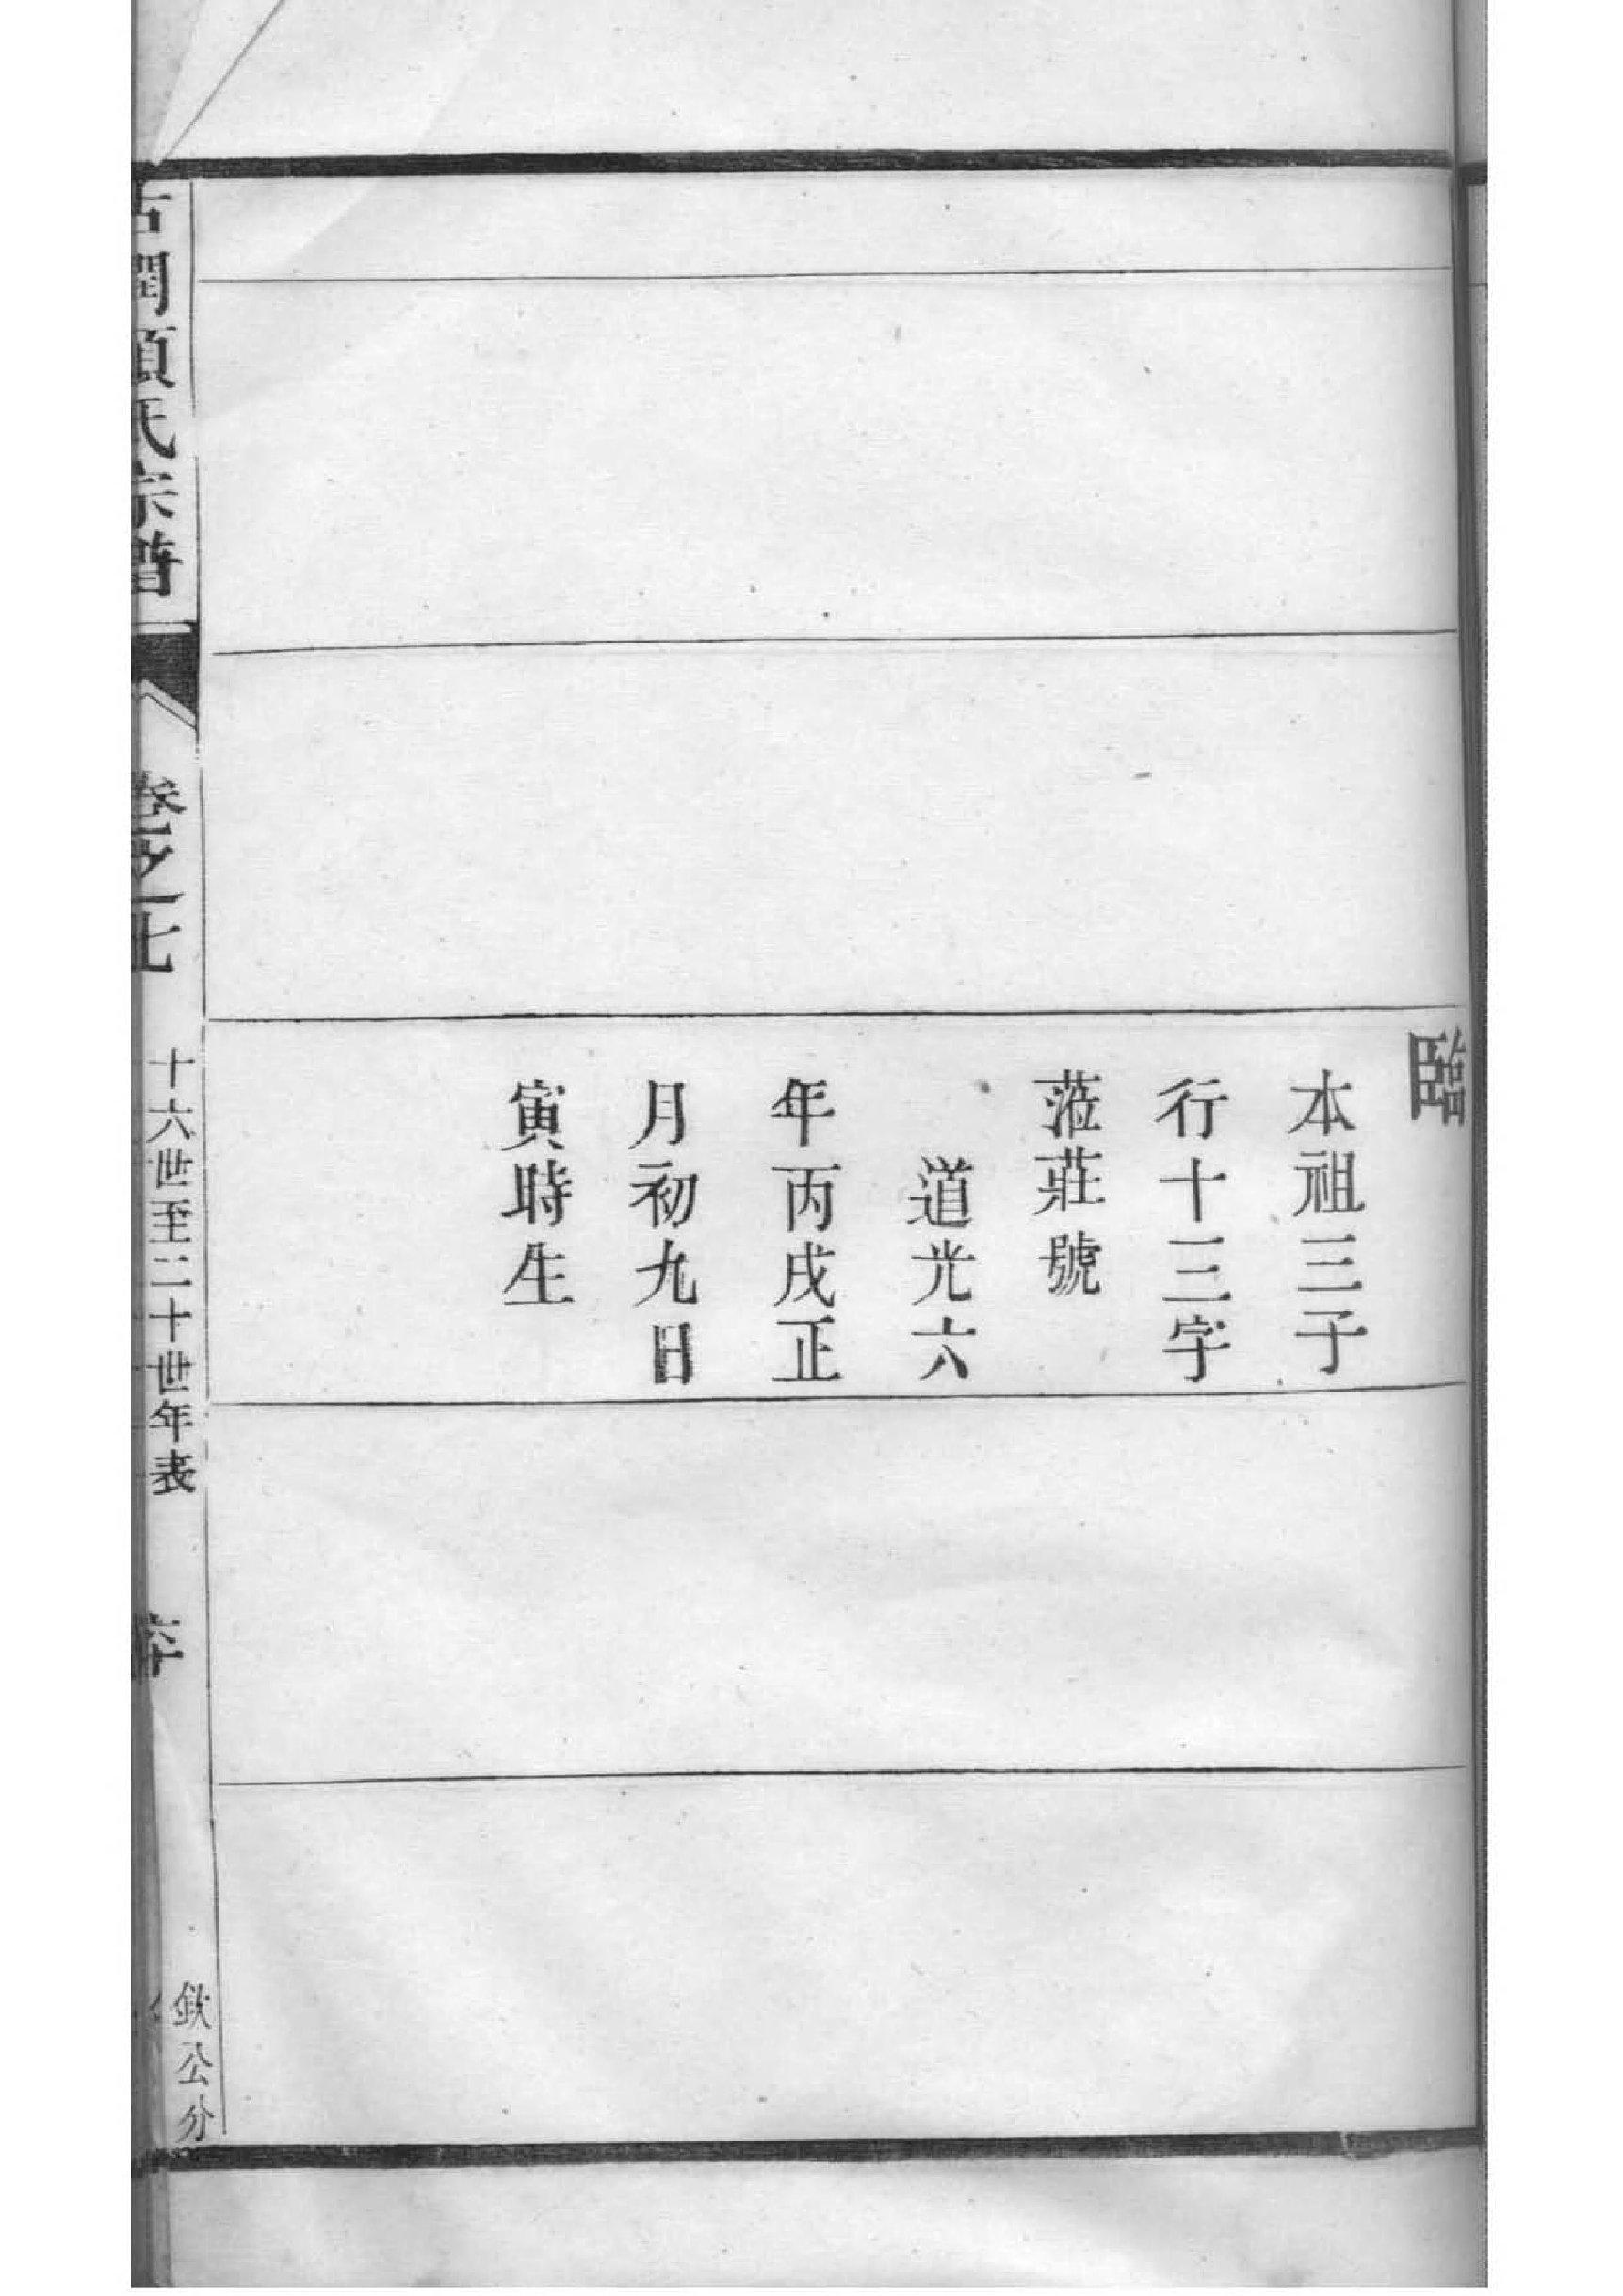 臨
本祖三子
行十三字
蒞莊號
道光六
年丙戌正
月初九日
寅時生
古潤 氏宗譜
卷之七
十六世至二十世年表
六十
欽公分